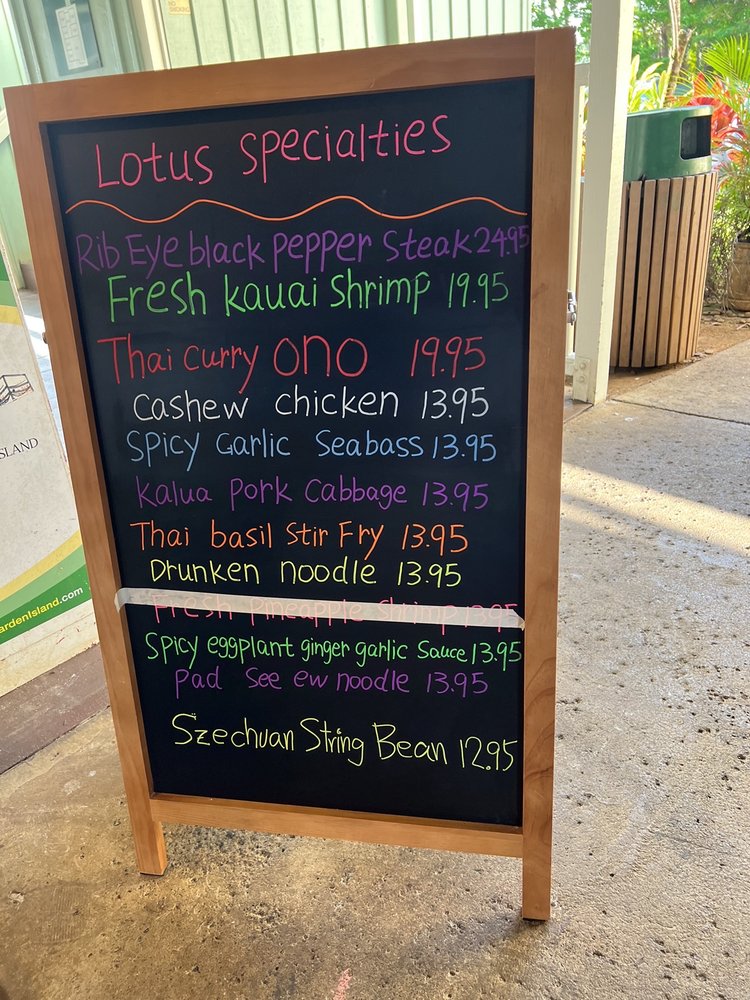 NO
SMOKING
Lotus Specialties
Rib Eye black pepper Steak 24.95
Fresh kauai Shrimp 19.95
Thai curry ONO 19.95
Cashew chicken 13.95
Spicy Garlic Seabass 13.95
Kalua pork Cabbage 13.95
Thai basil Stir Fry 13.95
Drunken noodle 13.95
Fresh Pineapple Shrimp 13.95
Spicy eggplant ginger garlic Sauce 13.95
Pad See ew noodle 13.95
Szechuan String Bean 12.95
SLAND
ardenIsland.com